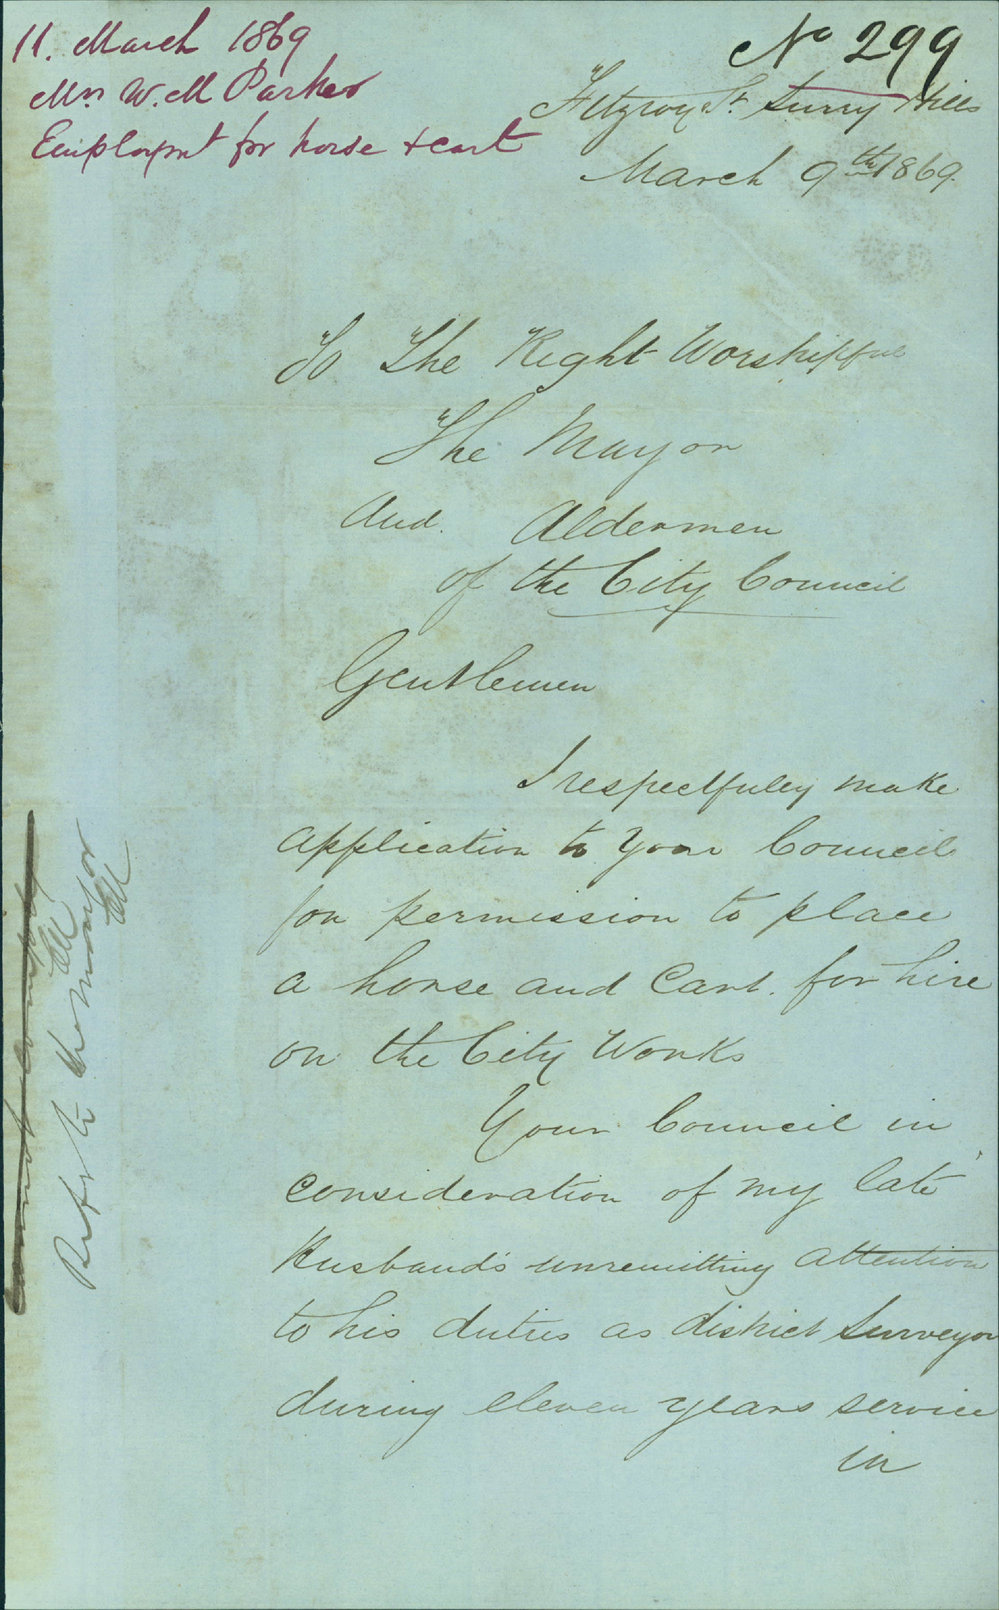 11. March 1869
Mrs W. M Parker
Employmt for horse & cart
No 299
Fitzroy St. Surry Hills
March 9th 1869.
To The Right Worshipful
The Mayor
And. Aldermen
of the City Council
Gentlemen
I respectfuley make
application to your Council
for permission to place
a horse and Cart. for hire
on the City Works
Your Council in
consideration of my late
Husband's unremitting attention
to his duties as district Surveyor
during eleven years service
in
Refer to the mayor